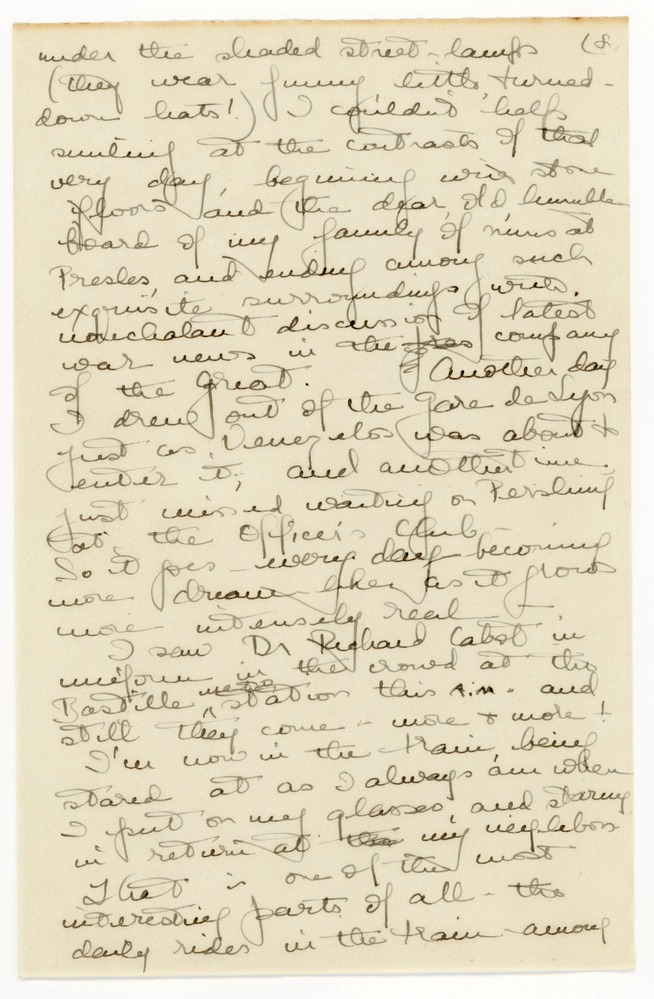 under the shaded street-lamps (8.
(they wear funny little turned-
down hats!) I couldn't help
smiling at the contrasts of that
very day, beginning with stone
floors and the dear, old humble
board of my family of nuns at
Presles, and ending among such
exquisite surroundings with
nonchalant discussion of latest
war news in the company
of the great. Another day
I drew out of the Gare de Lyon
just as Venezelos was about to
enter it; and another time
just missed waiting on Pershing
at the Officers Club—
So it goes—every day becoming
more dream-like, as it grows
more intensely real—
I saw Dr Richard Cabot in
uniform in the crowd at the
Bastille metro station this A.M. and
still they come - more & more!
I'm now in the train, being
stared at as I always am when
I put on my glasses and staring
in return at my neighbors
That is one of the most
interesting parts of all - the
daily rides in the train - among